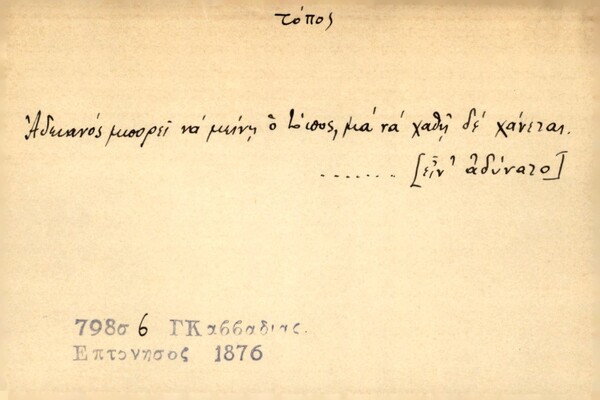 τόπος
Ἀδειανός μπορεῖ νά μείνῃ ὁ τόπος, μά νά χαθῇ δέ χάνεται.
....... [εἶν' ἀδύνατο]
798σ 6 ΓΚαββαδιας.
Επτονησος 1876